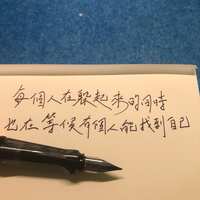 每個人在躲起來的同時
也在等候有個人能找到自己